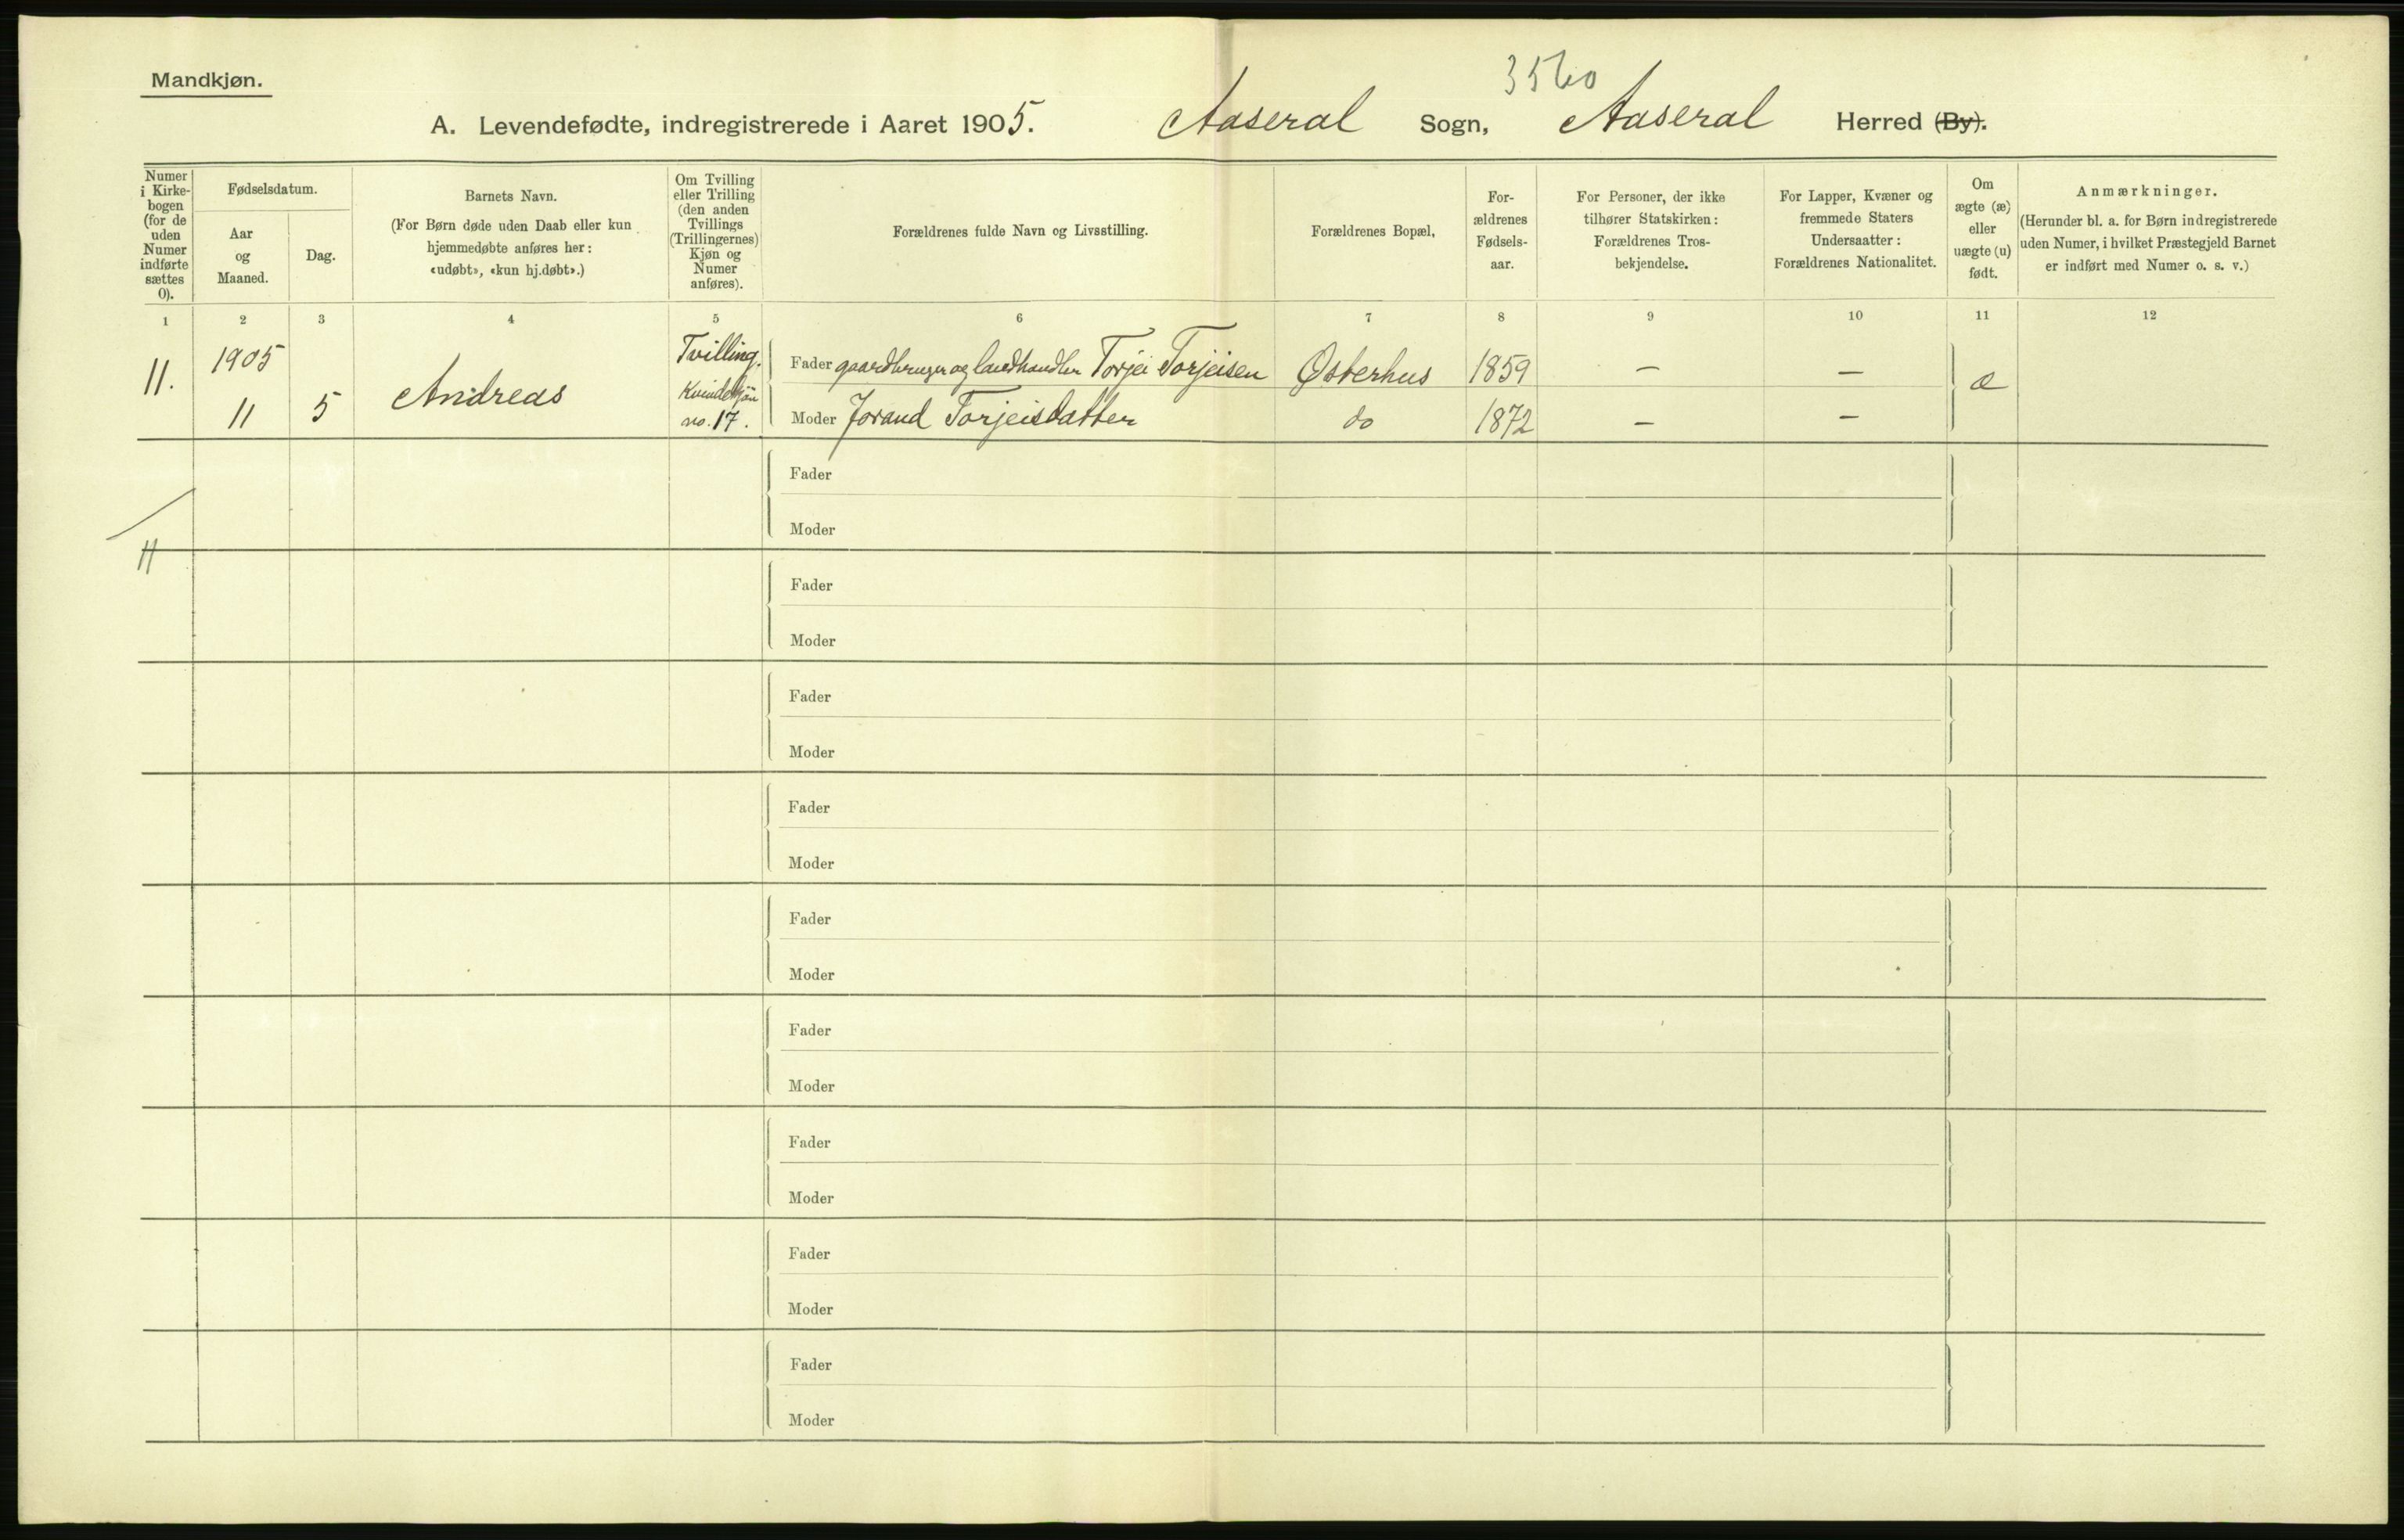 Mandkjøn.
3560
A. Levendefødte, indregistrerede i Aaret 1905. Aaseral Sogn, Aaseral Herred (By).
Numer i Kirke-bogen (for de uden Numer indførte sættes 0).
Fødselsdatum.
Aar og Maaned.
Dag.
Barnets Navn.
(For Børn døde uden Daab eller kun
hjemmedøbte anføres her:
«udøbt», «kun hj.døbt».)
Om Tvilling
eller Trilling
(den anden
Tvillings
(Trillingernes)
Kjøn og
Numer
anføres).
Forældrenes fulde Navn og Livsstilling.
Forældrenes Bopæl,
For-
ældrenes
Fødsels-
aar.
For Personer, der ikke
tilhører Statskirken:
Forældrenes Tros-
bekjendelse.
For Lapper, Kvæner og
fremmede Staters
Undersaatter:
Forældrenes Nationalitet.
Om
ægte (æ)
eller
uægte (u)
født.
Anmærkninger.
(Herunder bl. a. for Børn indregistrerede
uden Numer, i hvilket Præstegjeld Barnet
er indført med Numer o. s. v.)
1 2 3 4 5 6 7 8 9 10 11 12
11. 1905 11 5 Andreas
Tvilling.
Kvindekjön
no. 17.
Fader gaardbruger og landhandler Torjei Torjeisen Østerhus 1859 — — æ
Moder Jorand Torjeisdatter do 1872 — —
Fader
Moder
11
Fader
Moder
Fader
Moder
Fader
Moder
Fader
Moder
Fader
Moder
Fader
Moder
Fader
Moder
Fader
Moder